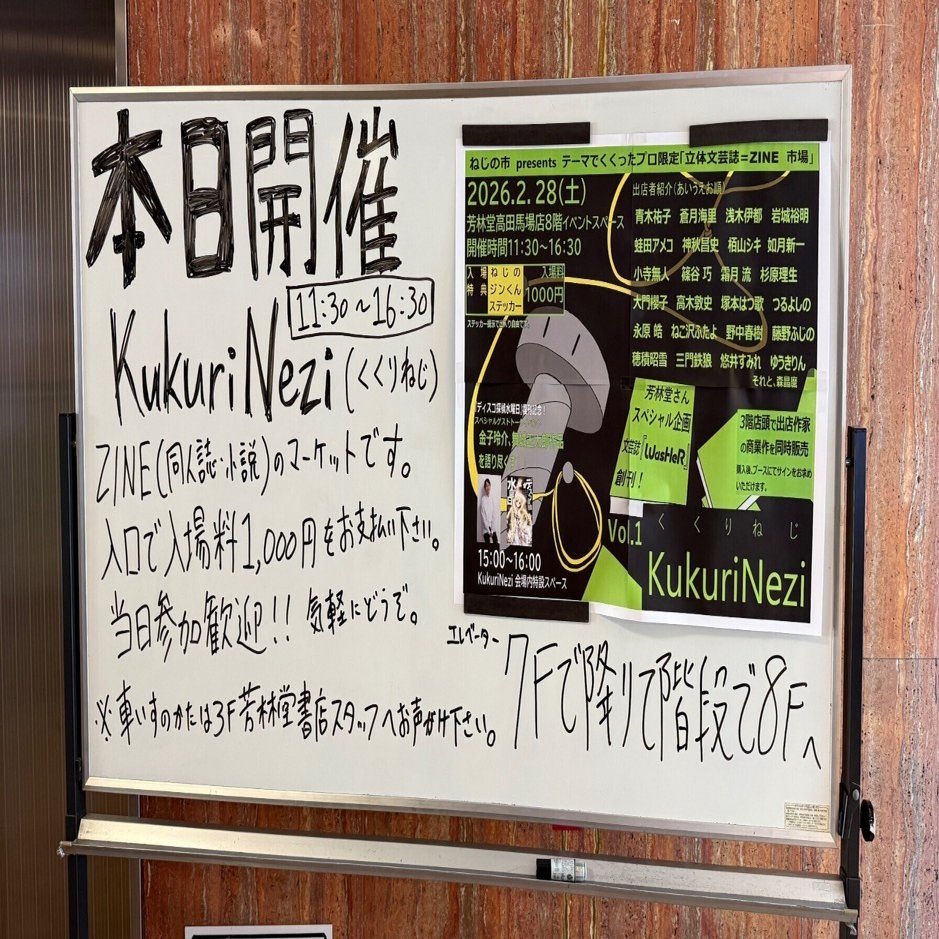 本日開催
11:30〜16:30
KukuriNezi(くくりねじ)
ZINE(同人誌・小説)のマーケットです。
入口で入場料1,000円をお支払い下さい。
当日参加歓迎!! 気軽にどうぞ。
※車いすのかたは3F芳林堂書店スタッフへお声がけ下さい。
エレベーター
7Fで降りて階段で8Fへ
ねじの市 presents テーマでくくったプロ限定「立体文芸誌=ZINE 市場」
2026.2.28(土)
芳林堂高田馬場店8階イベントスペース
開催時間11:30~16:30
入場特典
ねじのジンくんステッカー
入場料
1000円
ステッカー提示で出入り自由です!
出店者紹介(あいうえお順)
青木祐子 蒼月海里 浅木伊都 岩城裕明
蛙田アメコ 神秋昌史 栖山シキ 如月新一
小寺無人 篠谷 巧 霜月 流 杉原理生
大門櫻子 高木敦史 塚本はつ歌 つるよしの
永原 皓 ねこ沢ふたよ 野中春樹 藤野ふじの
穂積昭雪 三門鉄狼 悠井すみれ ゆうきりん
それと、森晶麿
『ディスコ探偵水曜日』復刊記念!
スペシャルゲストトーク
金子玲介、
を語り尽くす
15:00~16:00
KukuriNezi 会場内特設スペース
芳林堂さん
スペシャル企画
文芸誌『WasHeR』
創刊!
3階店頭で出店作家
の商業作を同時販売
購入後、ブースにてサインをお求め
いただけます。
Vol.1
くくりねじ
KukuriNezi